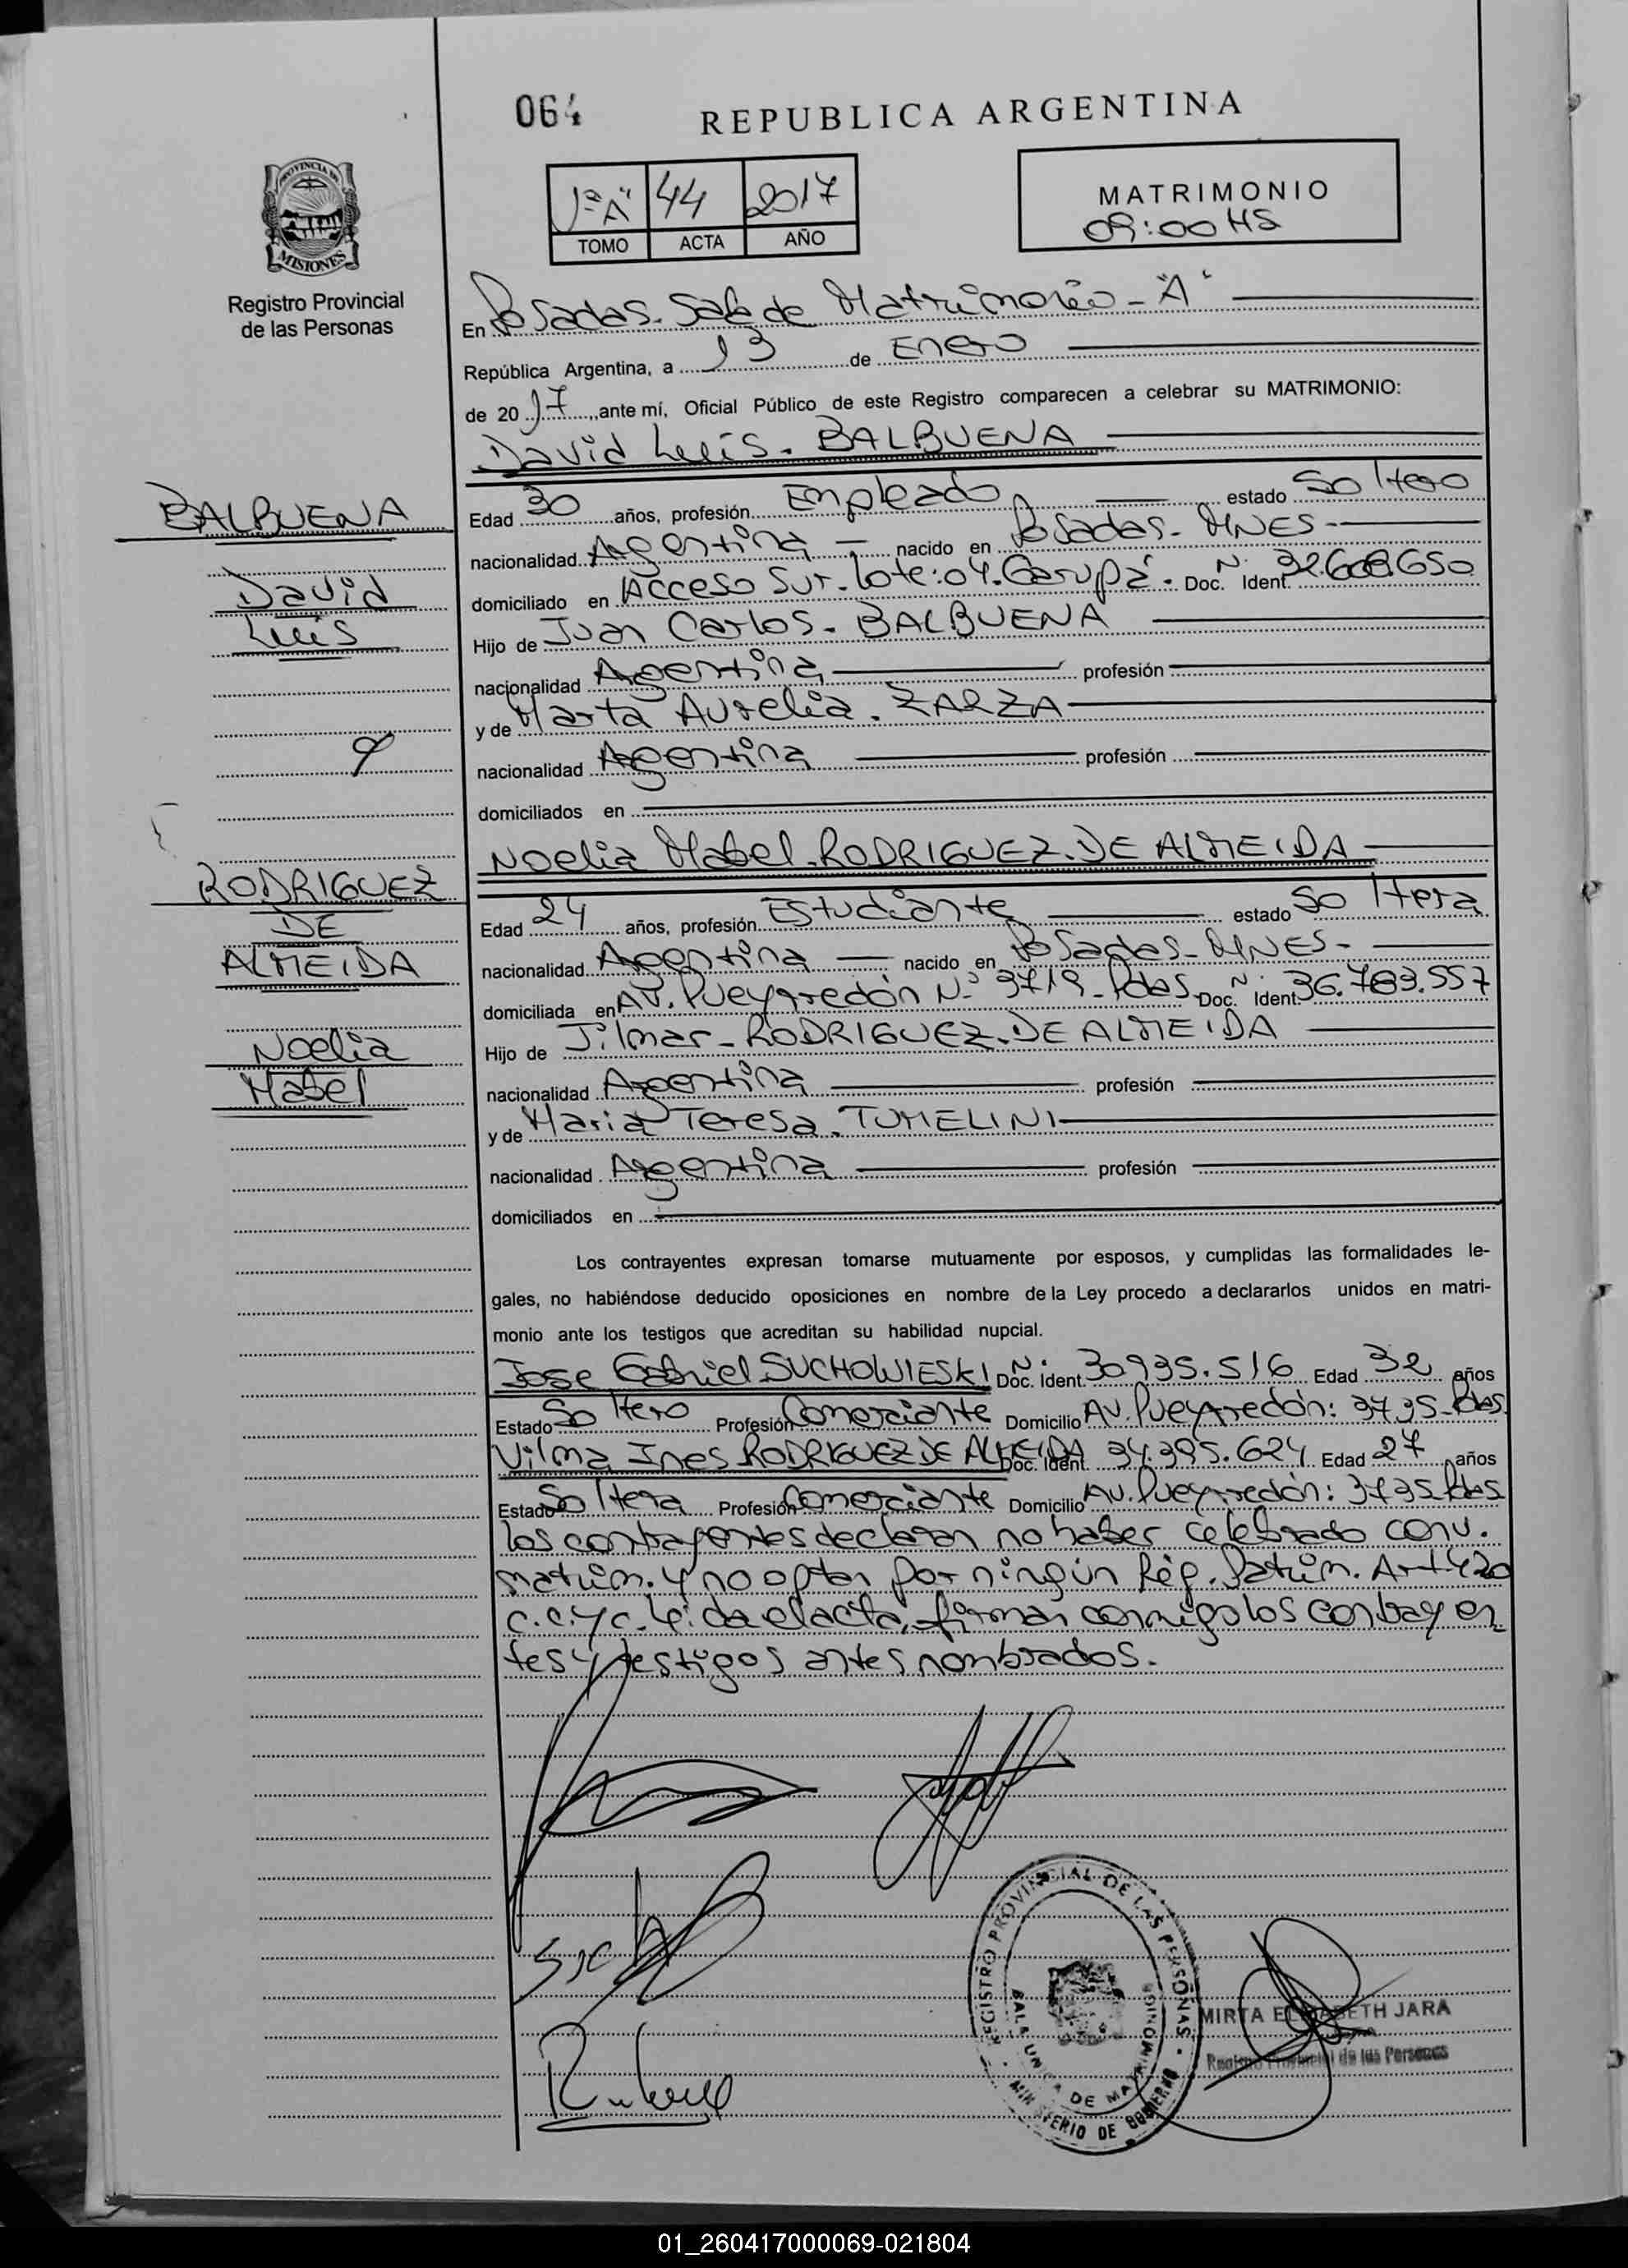 064
REPUBLICA ARGENTINA
PROVINCIA DE
MISIONES
Registro Provincial
de las Personas
1º"A" 44 2017
TOMO ACTA AÑO
MATRIMONIO
09:00 HS
En Posadas. Sala de Matrimonio - "A"
República Argentina, a 13 de Enero
de 2017, ante mí, Oficial Público de este Registro comparecen a celebrar su MATRIMONIO:
David Luis. BALBUENA
BALBUENA
David
Luis
Edad 30 años, profesión Empleado estado Soltero
nacionalidad Argentina nacido en Posadas - MNES -
domiciliado en Acceso Sur. Lote: 04. Garupá. Doc. Ident. Nº 32.608.650
Hijo de Juan Carlos. BALBUENA
nacionalidad Argentina profesión
y de Marta Aurelia. ZARZA
nacionalidad Argentina profesión
domiciliados en
Noelia Mabel. RODRIGUEZ. DE ALMEIDA
y
RODRIGUEZ
DE
ALMEIDA
Noelia
Mabel
Edad 24 años, profesión Estudiante estado Soltera
nacionalidad Argentina nacido en Posadas - MNES -
domiciliada en AV. Pueyrredón Nº 3719 - Pdas. Doc. Ident. Nº 36.783.557
Hijo de Jilmar - RODRIGUEZ. DE ALMEIDA
nacionalidad Argentina profesión
y de Maria Teresa. TUMELINI
nacionalidad Argentina profesión
domiciliados en
Los contrayentes expresan tomarse mutuamente por esposos, y cumplidas las formalidades le-
gales, no habiéndose deducido oposiciones en nombre de la Ley procedo a declararlos unidos en matri-
monio ante los testigos que acreditan su habilidad nupcial.
Jose Gabriel SUCHOWIESKI Doc. Ident. Nº 30.935.516 Edad 32 años
Estado Soltero Profesión Comerciante Domicilio AV. Pueyrredón: 3735 - Pdas
Vilma Ines RODRIGUEZ DE ALMEIDA Doc. Ident. 34.395.624 Edad 27 años
Estado Soltera Profesión Comerciante Domicilio AV. Pueyrredón: 3735 Pdas
Los contrayentes declaran no haber celebrado conv.
matrim. y no optan por ningún Rég. Patrim. Art 420
C.C. y C. Leída el acta, firman conmigo los contrayen
tes y testigos antes nombrados.
REGISTRO PROVINCIAL DE LAS PERSONAS
SALA UNICA DE MATRIMONIOS
MINISTERIO DE GOBIERNO
MIRTA ELISABETH JARA
Registro Provincial de las Personas
01_260417000069-021804